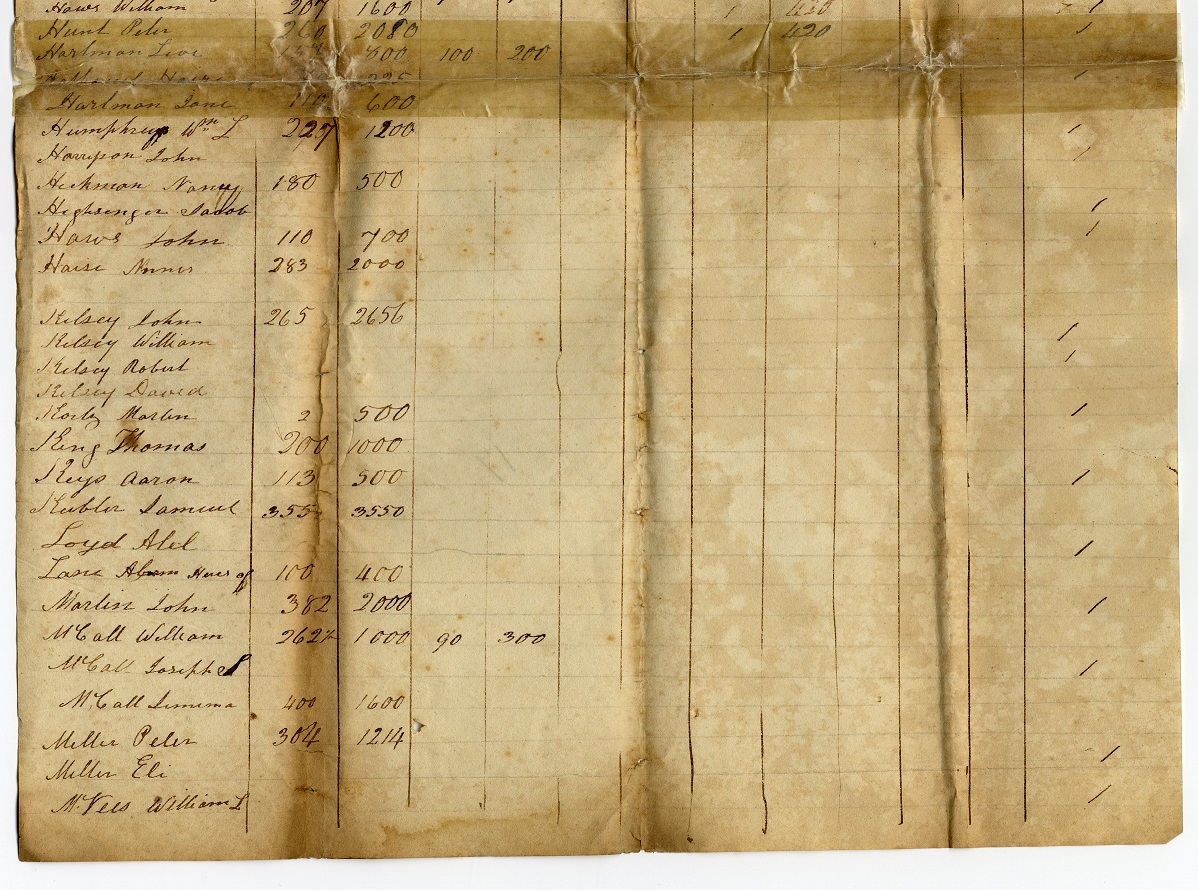 Haws William 207 1600 1 420 1
Hunt Peter 260 2080 1 420
Hartman Levi 800 100 200
225
Hartman Jane 110 600
Humphreys Wm L 227 1200 /
Harrison John /
Hickman Nancy 180 500
Highsinger Jacob /
Haws John 110 700 /
Haise 283 2000
Kelsey John 265 2656
Kelsey William /
Kelsey Robert /
Kelsey David
Martin 2 500 /
King Thomas 200 1000
Keys Aaron 113 500 /
Keebler Samuel 355 3550
Loyd Abel /
Lane Abram Heirs of 100 400
Martin John 382 2000 /
McCall William 262½ 1000 90 300
McCall Joseph S /
McCall Jemima 400 1600
Miller Peter 304 1214
Miller Eli /
William L /